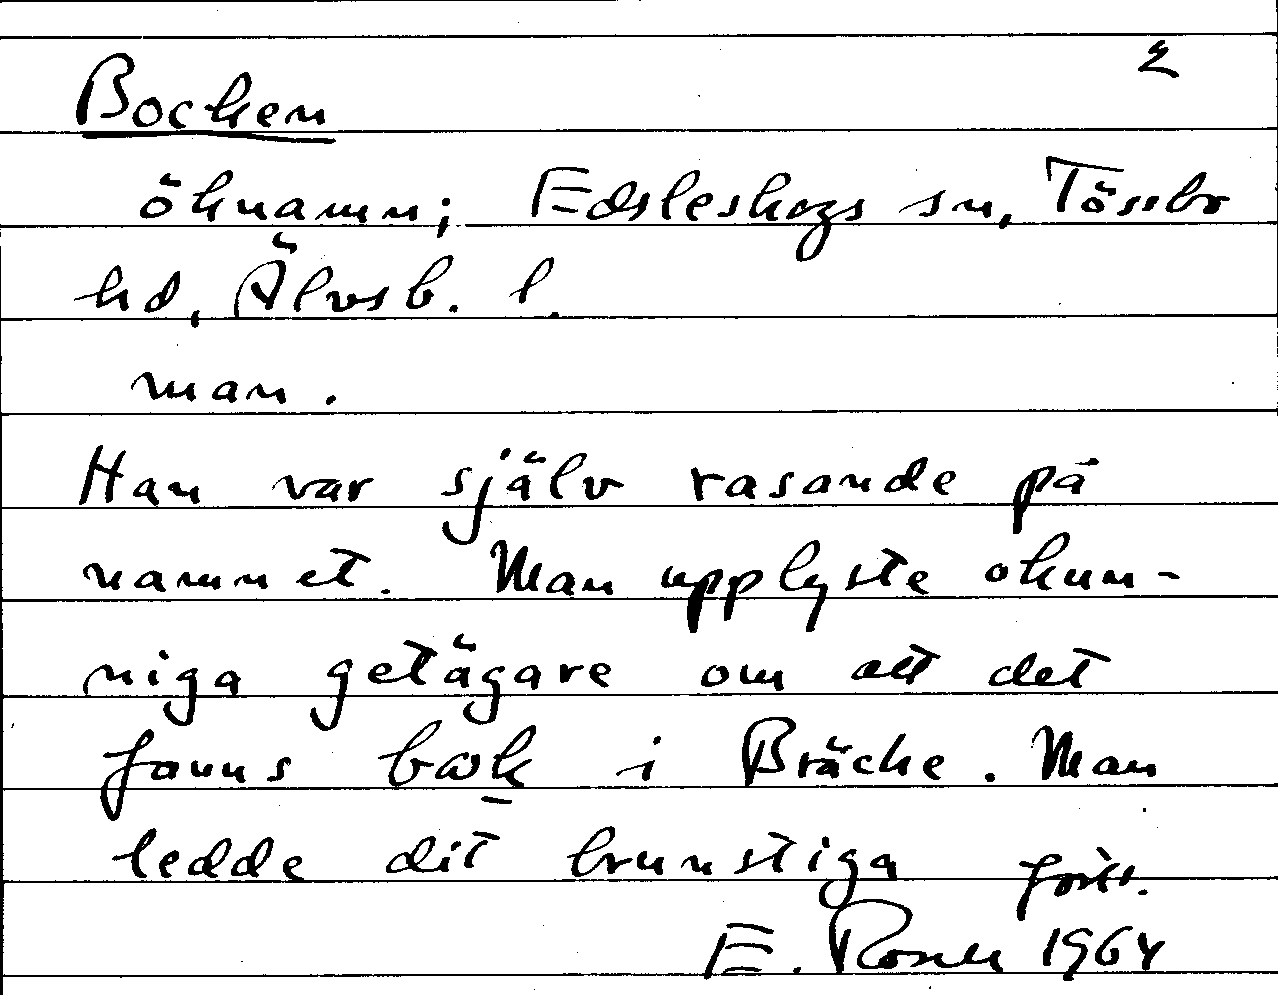 2
Bocken
öknamn; Edsleskogs sn, Tössbo
hd, Älvsb. l.
man.
Han var själv rasande på
namnet. Man upplyste okun-
niga getägare om att det
fanns bock i Bräcke. Man
ledde dit brunstiga forts.
E. Rosell 1964